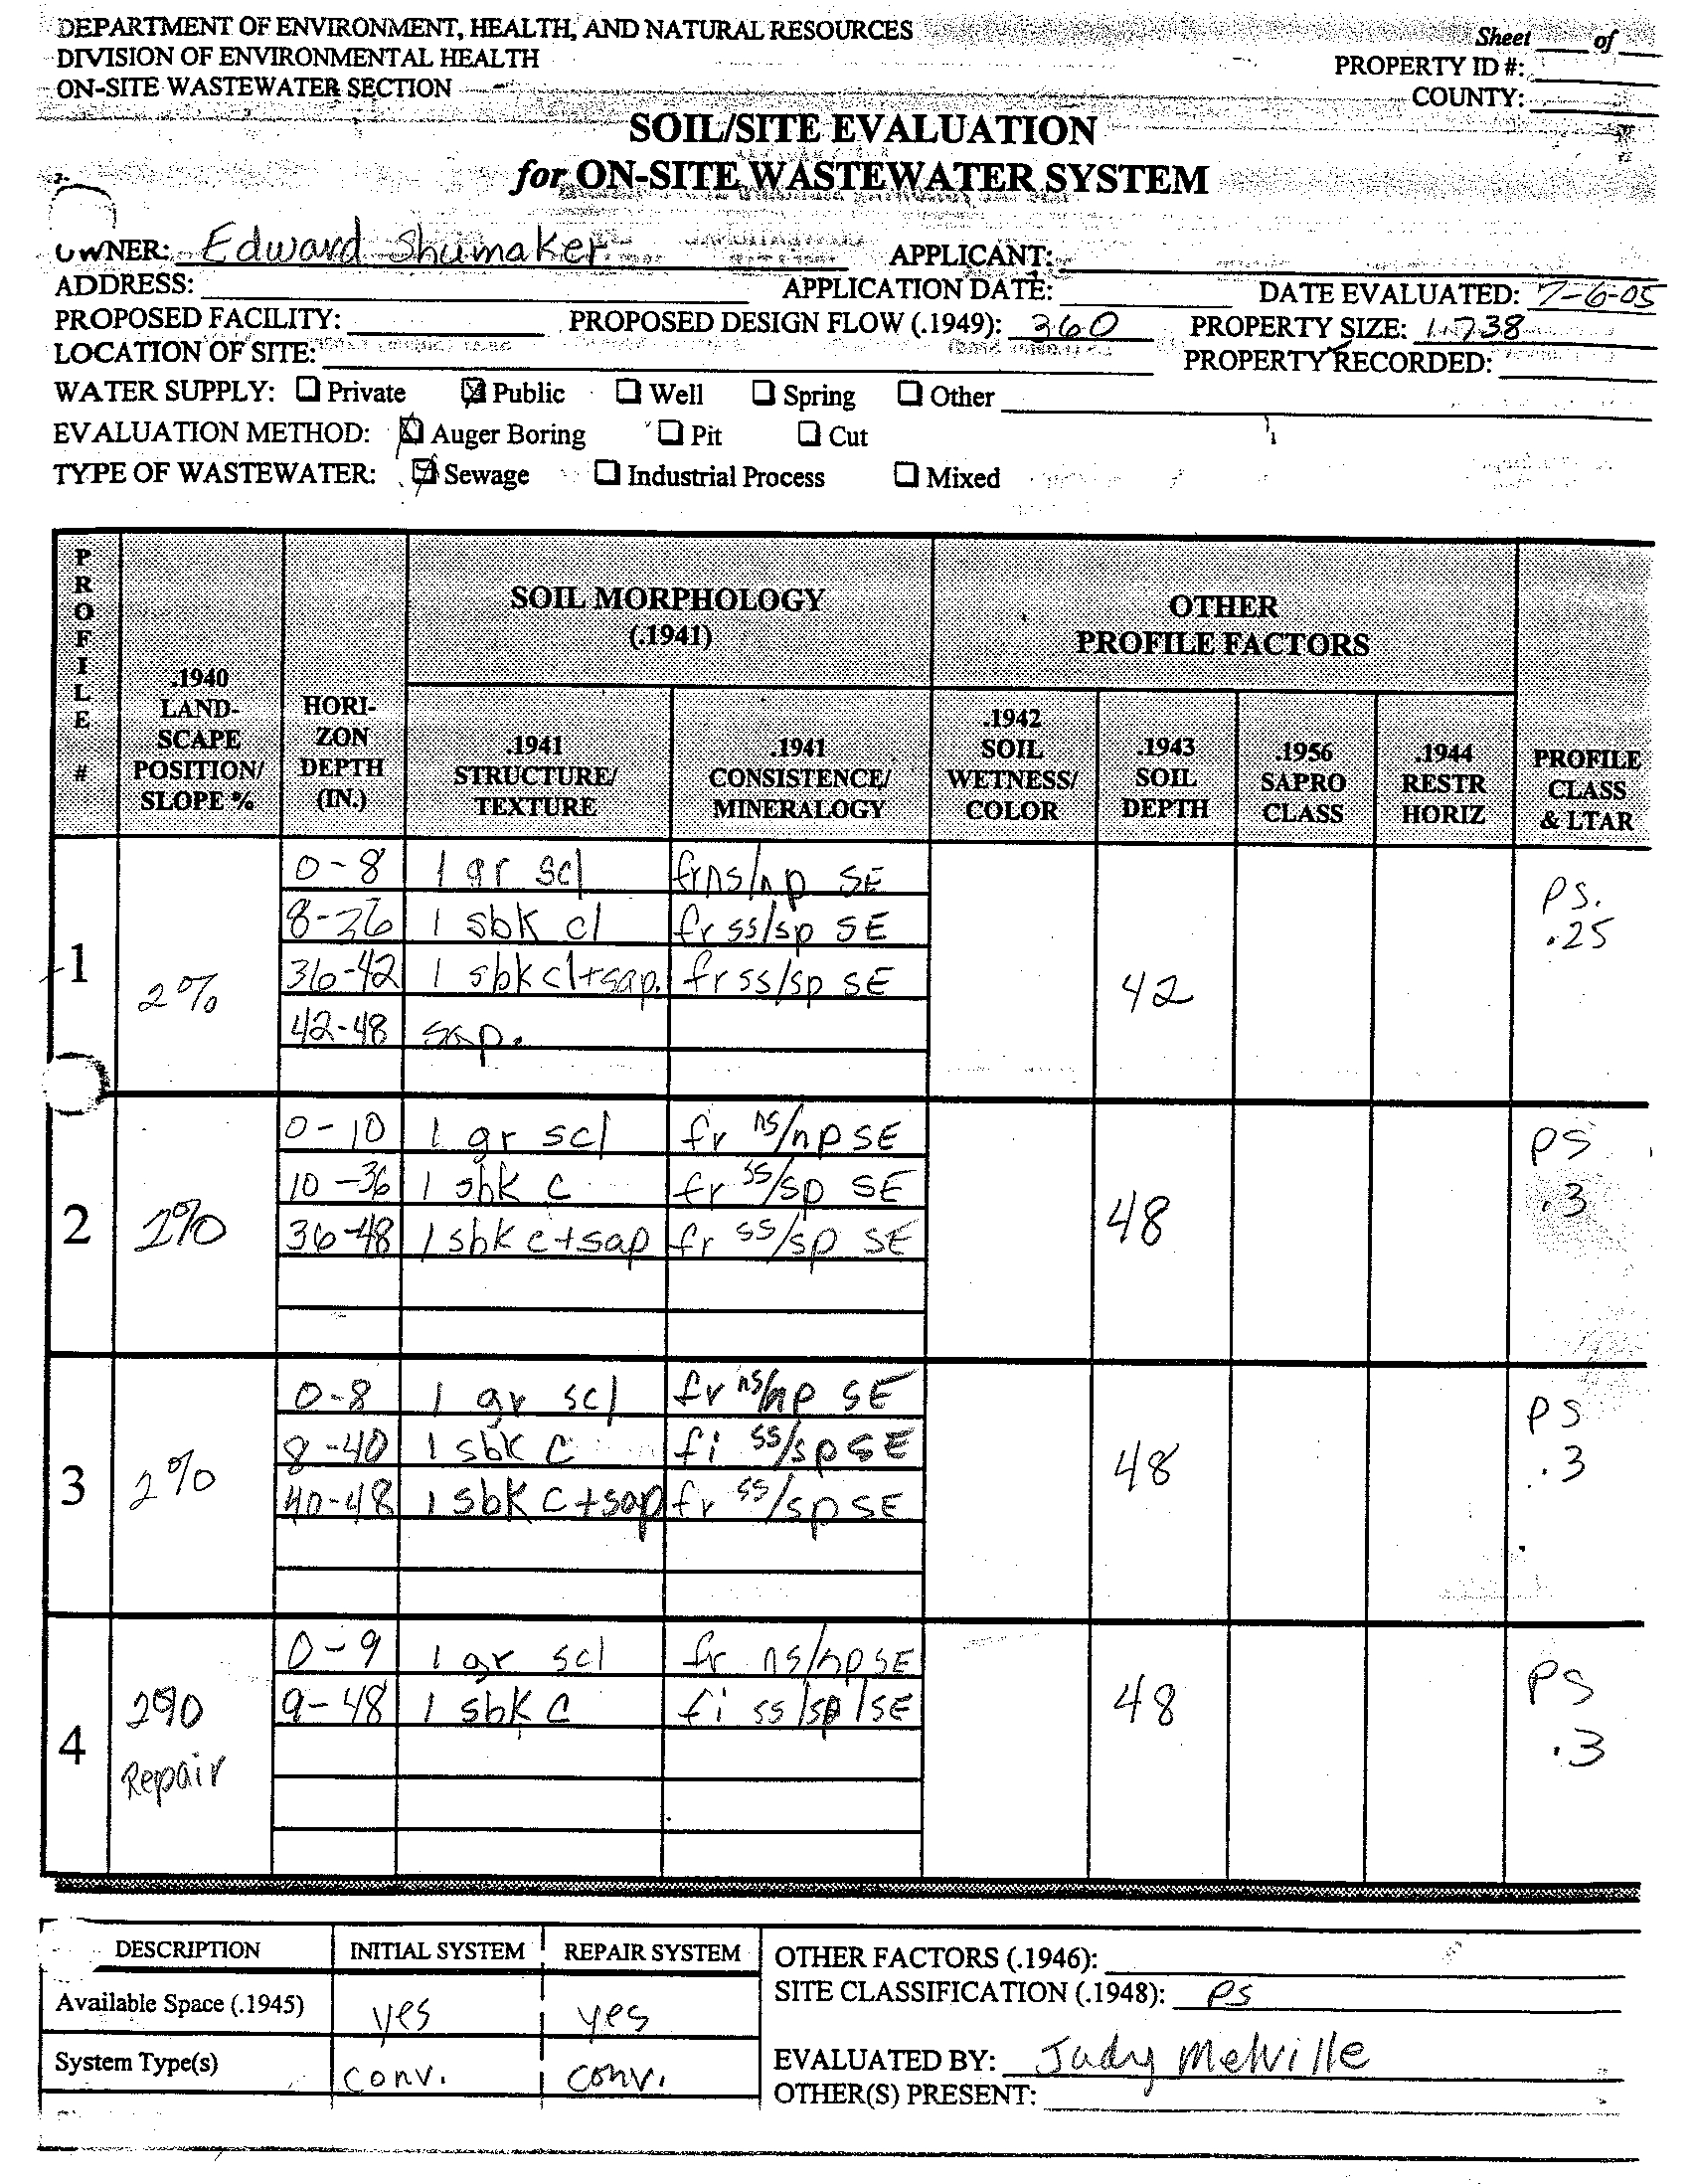 DEPARTMENT OF ENVIRONMENT, HEALTH, AND NATURAL RESOURCES
Sheet ____ of ____
DIVISION OF ENVIRONMENTAL HEALTH
PROPERTY ID #:
ON-SITE WASTEWATER SECTION
COUNTY:
SOIL/SITE EVALUATION
for ON-SITE WASTEWATER SYSTEM
OWNER: Edward Shumaker APPLICANT:
ADDRESS: APPLICATION DATE: DATE EVALUATED: 7-6-05
PROPOSED FACILITY: PROPOSED DESIGN FLOW (.1949): 360 PROPERTY SIZE: 1.738
LOCATION OF SITE: PROPERTY RECORDED:
WATER SUPPLY: ❑ Private ☒ Public ❑ Well ❑ Spring ❑ Other
EVALUATION METHOD: ☒ Auger Boring ❑ Pit ❑ Cut
TYPE OF WASTEWATER: ☒ Sewage ❑ Industrial Process ❑ Mixed
PROFILE #
.1940 LAND-SCAPE POSITION/ SLOPE %
HORI-ZON DEPTH (IN.)
SOIL MORPHOLOGY (.1941)
.1941 STRUCTURE/ TEXTURE
.1941 CONSISTENCE/ MINERALOGY
OTHER PROFILE FACTORS
.1942 SOIL WETNESS/ COLOR
.1943 SOIL DEPTH
.1956 SAPRO CLASS
.1944 RESTR HORIZ
PROFILE CLASS & LTAR
1 2% 42 PS. .25
0-8 1 gr scl fr ns/np SE
8-36 1 sbk cl fr ss/sp SE
36-42 1 sbk cl+sap. fr ss/sp SE
42-48 sap.
2 2% 48 PS .3
0-10 1 gr scl fr ns/np SE
10-36 1 sbk c fr ss/sp SE
36-48 1 sbk c+sap fr ss/sp SE
3 2% 48 PS .3
0-8 1 gr scl fr ns/np SE
8-40 1 sbk C fi ss/sp SE
40-48 1 sbk C+sap fr ss/sp SE
4 2% Repair 48 PS .3
0-9 1 gr scl fr ns/np SE
9-48 1 sbk C fi ss/sp/SE
DESCRIPTION INITIAL SYSTEM REPAIR SYSTEM
Available Space (.1945) yes yes
System Type(s) conv. conv.
OTHER FACTORS (.1946):
SITE CLASSIFICATION (.1948): PS
EVALUATED BY: Judy Melville
OTHER(S) PRESENT: